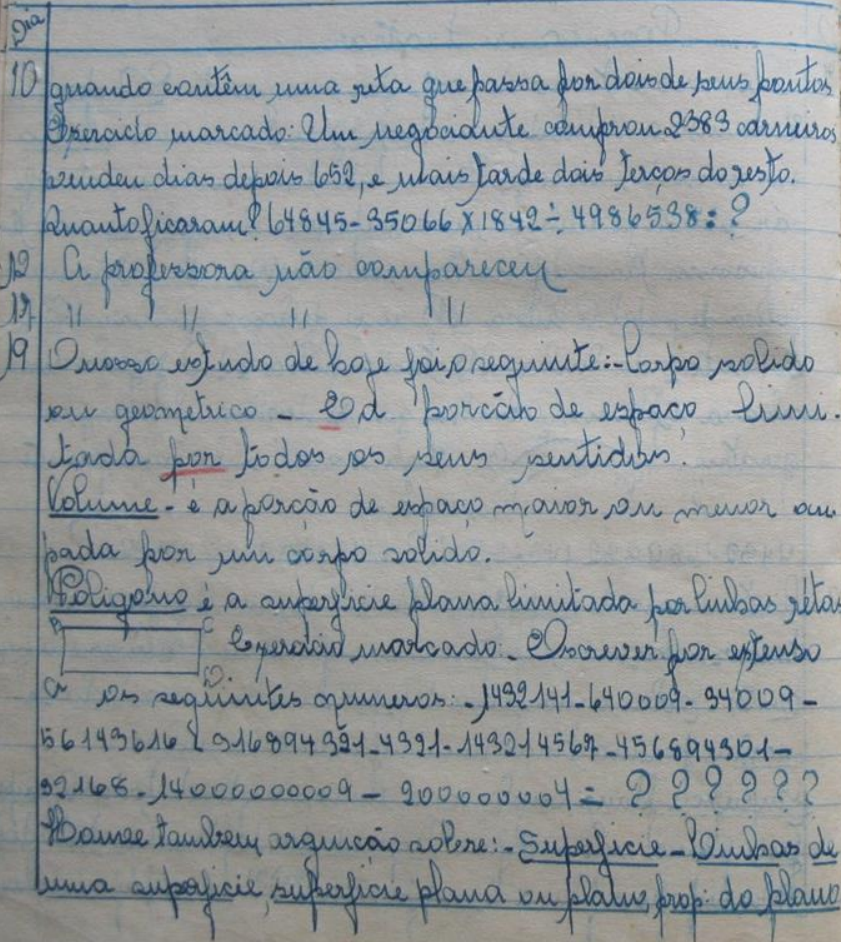 Dia
10 quando contêm uma reta que passa por dois de seus pontos
Exercicio marcado: Um negociante comprou 2383 carneiros
vendeu dias depois 652, e mais tarde dois terços do resto.
Quanto ficaram? 64845-35066 X 1842 ÷ 4986538 = ?
12 A professora não compareceu
17 " " " "
19 O nosso estudo de hoje foi o seguinte:- Corpo solido
ou geometrico - É a porcão de espaço limi-
tada por todos os seus sentidos.
Volume - é a porcão de espaço maior ou menor ocu-
pada por um corpo solido.
Poligono é a superficie plana limitada por linhas retas
B C Exercicio marcado. Escrever por extenso
A D os seguintes numeros: - 1432141-640009-34009-
56143616 - 316894321-4321-143214567-456894301-
32168-14000000009 - 200000004 = ? ? ? ? ? ?
Houve tambem arguicão sobre:- Superficie - Linhas de
uma superficie, superficie plana ou plano, prop: do plano